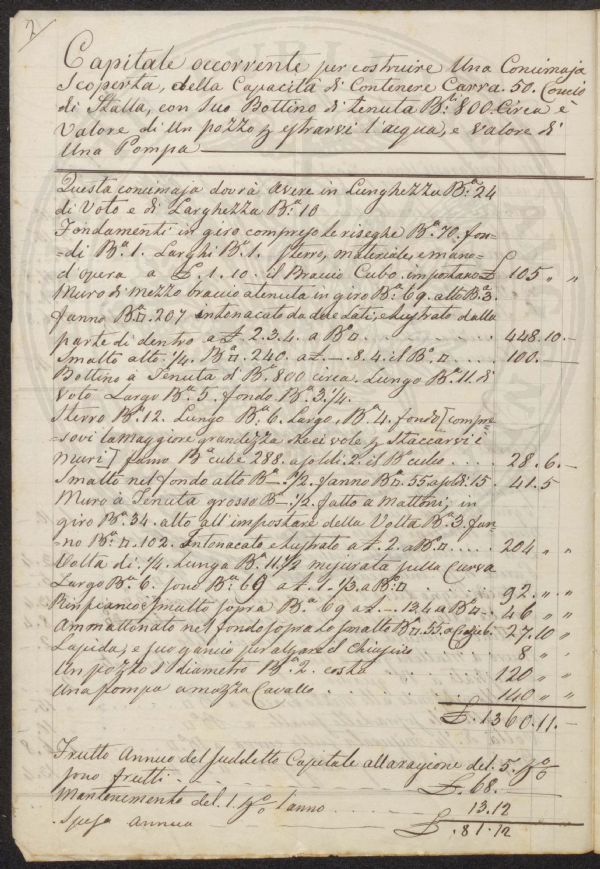 2
Capitale occorrente per costruire Una Concimaja
Scoperta, della Capacità di Contenere Carra 50. Concio
di Stalla, con Suo Bottino di tenuta B.a 800. Circa è
Valore di Un pozzo p estrarvi l'acqua, e Valore di
Una Pompa
Questa concimaja dovrà Avere in Lunghezza B.a 24
di Voto e di Larghezza B.a 10
Fondamenti in giro compreso le riseghe B.a 70. fon=
=di B.a 1. Larghi B.a 1. Sterro, materiale, e mano=
d'opera a £. 1. 10. il Braccio Cubo. importano £ 105 " "
Muro di mezzo braccio a tenuta in giro B.a 69. alto B.a 3.
fanno B.a □. 207 intonacato da due lati, e lustrato dalla
parte di dentro a £. 2. 3. 4. a B.o □ . . . . . 448. 10. —
Smalto alto. 1/4. B.a □. 240. a £. —. 8. 4. il B.o □ . . . . 100. —
Bottino à Tenuta di B.i 800 circa. Lungo B.a 11. di
voto Largo B.a 5. fondo B.a 3. 1/4.
Sterro B.a 12. Lungo B.a 6. Largo, B.a 4. fondo [compre=
=sovi la maggiore grandezza p Staccarvi i
Muri] fanno B.a cube 288. a soldi. 2. il B.o cubo . . . . 28. 6. —
Smalto nel fondo alto B.a —. 1/2. fanno B.a □. 55. a soldi. 15. 41. 5
Muro à Tenuta grosso B.a —. 1/2. fatto a Mattoni; in
giro B.a 34. alto all'impostare della Volta B.a 3. fan=
=no B.a □. 102. intonacato e lustrato a £. 2. a B.o □ . . . . 204 " "
Volta di. 1/4. Lunga B.a 11. 1/2 misurata sulla Curva
Larga B.a 6. sono B.a 69 a £. 1. 1/3. a B.o □ . . . . . 92. " "
Rinfianco e Smalto sopra B.a 69 a £. —. 13. 4 a B.o □ . 46 " "
Ammattonato nel fondo sopra lo Smalto B.a □. 55. a 27. 10 "
Lapida, e suo gancio per alzare il Chiusino . . . . 8 " "
Un pozzo di diametro B.a 2. costa . . . . . . 120 " "
Una pompa a mazza Cavallo . . . . . . . 140 " "
£. 1360. 11. —
Frutto Annuo del suddetto Capitale alla ragione del. 5. p %
sono frutti . . . . . £. 68. —
Mantenimento del. 1. p % l'anno . . . . . 13. 12
Spesa annua . . . . . £. 81. 12